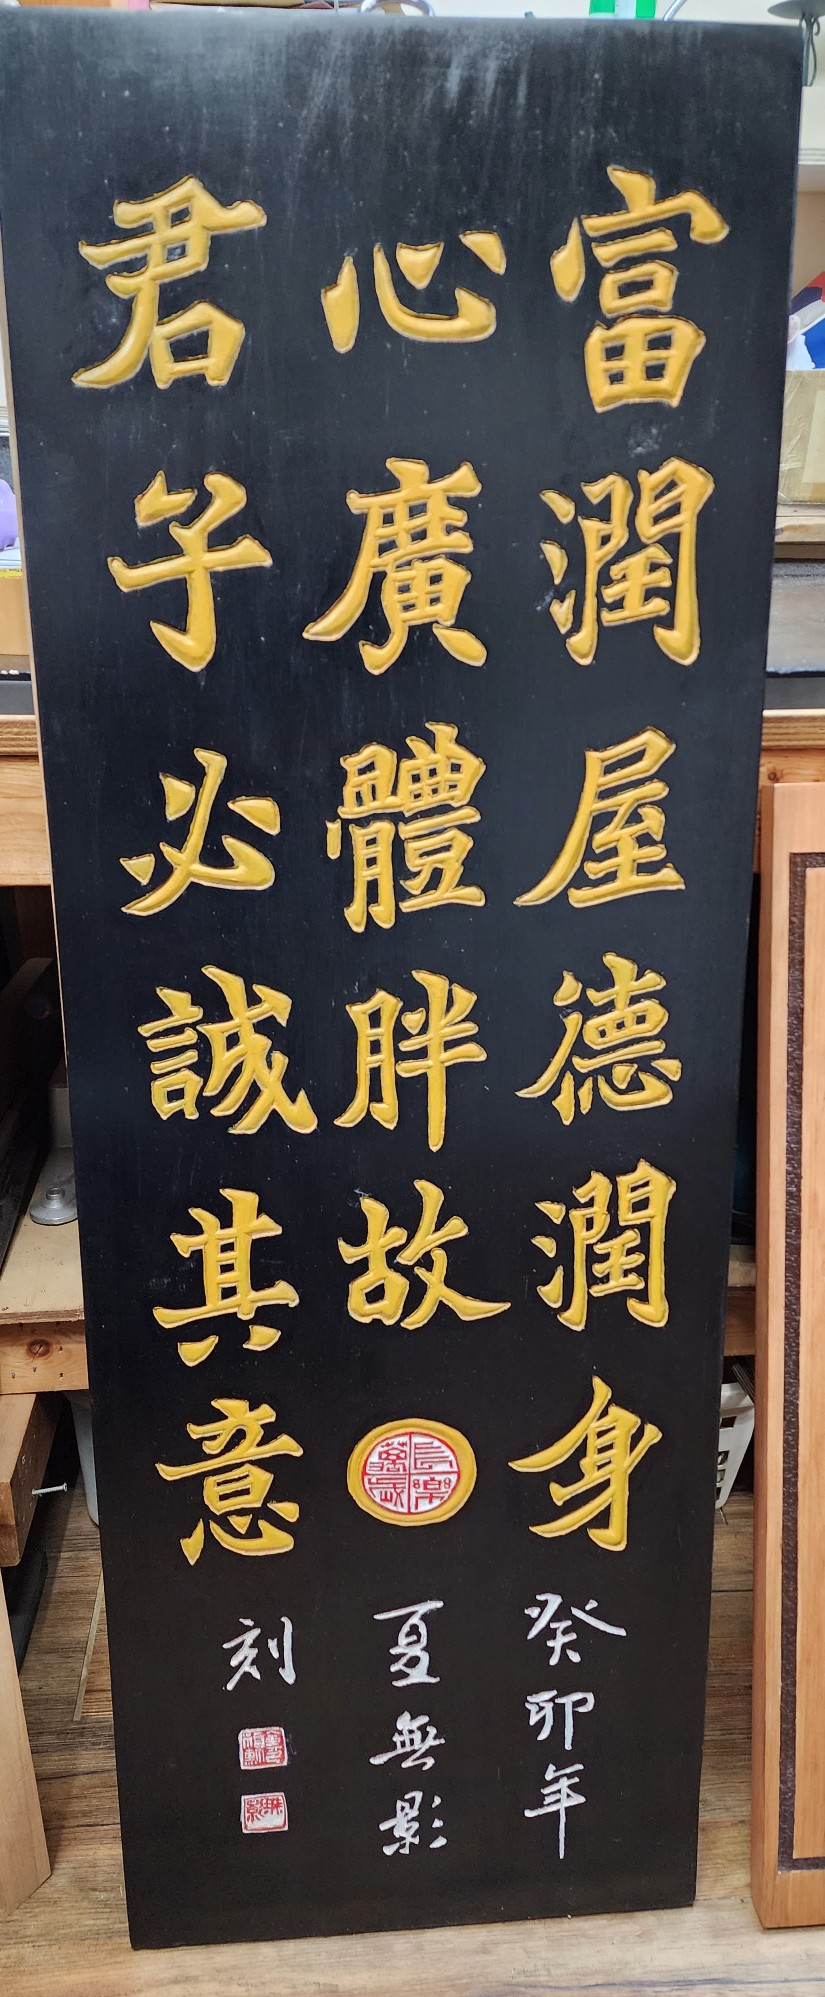 富潤屋德潤身
心廣體胖故
君子必誠其意
長樂萬歲
癸卯年
夏無影
刻
無影